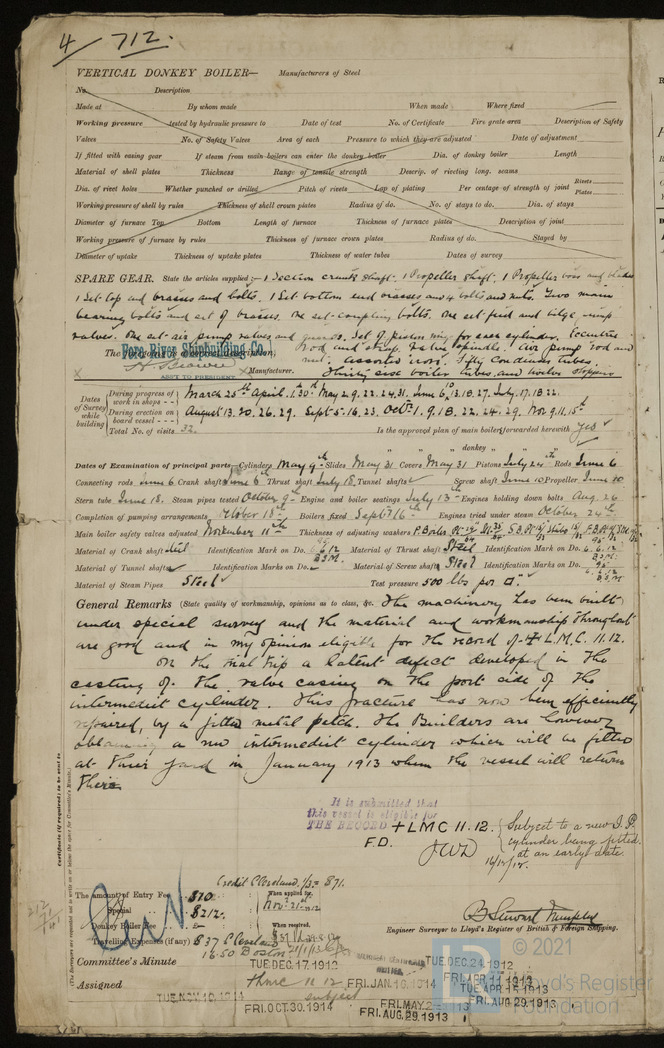 4/712.
VERTICAL DONKEY BOILER— Manufacturers of Steel
No. Description
Made at By whom made When made Where fixed
Working pressure tested by hydraulic pressure to Date of test No. of Certificate Fire grate area Description of Safety
Valves No. of Safety Valves Area of each Pressure to which they are adjusted Date of adjustment
If fitted with easing gear If steam from main boilers can enter the donkey boiler Dia. of donkey boiler Length
Material of shell plates Thickness Range of tensile strength Descrip. of riveting long. seams
Dia. of rivet holes Whether punched or drilled Pitch of rivets Lap of plating Per centage of strength of joint Rivets Plates
Working pressure of shell by rules Thickness of shell crown plates Radius of do. No. of stays to do. Dia. of stays
Diameter of furnace Top Bottom Length of furnace Thickness of furnace plates Description of joint
Working pressure of furnace by rules Thickness of furnace crown plates Radius of do. Stayed by
Diameter of uptake Thickness of uptake plates Thickness of water tubes Dates of survey
SPARE GEAR. State the articles supplied:— 1 Section crank shaft. 1 Propeller shaft. 1 Propeller boss and blades
1 Set top end brasses and bolts. 1 Set bottom end brasses and 4 bolts and nuts. Two main
bearing bolts and set of brasses. One set coupling bolts. One set feed and bilge pump
valves. One set air pump valves and guards. Set of piston ring for each cylinder. Eccentric
rod and strap. Valve spindle. Air pump rod and
The foregoing is a correct description,
Fore River Shipbuilding Co.
nut. Assorted iron. Fifty Condenser tubes.
Manufacturer. Thirty six boiler tubes, and twelve stoppers
ASST TO PRESIDENT
Dates of Survey while building
During progress of work in shops -- March 25th April. 1. 30th May 2. 9. 22. 24. 31. June 6. 10. 13. 18. 27. July. 17. 18. 22.
During erection on board vessel --- August 13. 20. 26. 29. Sept 5. 16. 23. Oct. 1. 9. 18. 22. 24. 29. Nov 9. 11. 15th
Total No. of visits 32. Is the approved plan of main boiler forwarded herewith Yes
" " " donkey " " "
Dates of Examination of principal parts—Cylinders May 9th Slides May 31 Covers May 31 Pistons July 24th Rods June 6
Connecting rods June 6 Crank shaft June 6th Thrust shaft July 18 Tunnel shafts Screw shaft June 10 Propeller June 20
Stern tube June 18. Steam pipes tested October 9th Engine and boiler seatings July 13th Engines holding down bolts Aug. 26
Completion of pumping arrangements October 18th Boilers fixed Sept 16th Engines tried under steam October 24th
Main boiler safety valves adjusted November 11th Thickness of adjusting washers
Material of Crank shaft Steel Identification Mark on Do. 6.6.12 Material of Thrust shaft Steel Identification Mark on Do. 6.6.12
Material of Tunnel shafts Identification Marks on Do. Material of Screw shafts Steel Identification Marks on Do.
Material of Steam Pipes Steel Test pressure 500 lbs per □"
General Remarks (State quality of workmanship, opinions as to class, &c. The machinery has been built
under special survey and the material and workmanship throughout
are good and in my opinion eligible for the record of + L.M.C. 11.12.
On the trial trip a latent defect developed in the
casting of the valve casing on the port side of the
intermediet cylinder. This fracture has now been efficiently
repaired, by a fitted metal patch. The Builders are however
obtaining a new intermediet cylinder which will be fitted
at their yard in January 1913 when the vessel will return
there
It is submitted that
this vessel is eligible for
THE RECORD + LMC 11.12.
F.D.
Subject to a new I.P.
cylinder being fitted
at an early date.
Certificate (if required) to be sent to
Credit Cleveland. 1/3 = $71.
The amount of Entry Fee $10. When applied for,
Special $212. Nov. 21st 12
Donkey Boiler Fee When received,
Travelling Expenses (if any) $37 Cleveland
16.50 Boston
Engineer Surveyor to Lloyd's Register of British & Foreign Shipping.
Committee's Minute TUE. DEC. 17. 1912 TUE. DEC. 24. 1912
Assigned + LMC 11 12 subject
FRI. JAN. 16. 1914 FRI. APR. 11. 1913
TUE. APR. 15. 1913
TUE. NOV. 10. 1914 FRI. OCT. 30. 1914 FRI. AUG. 29. 1913
FRI. AUG. 29. 1913
© 2021
Lloyd's Register
Foundation